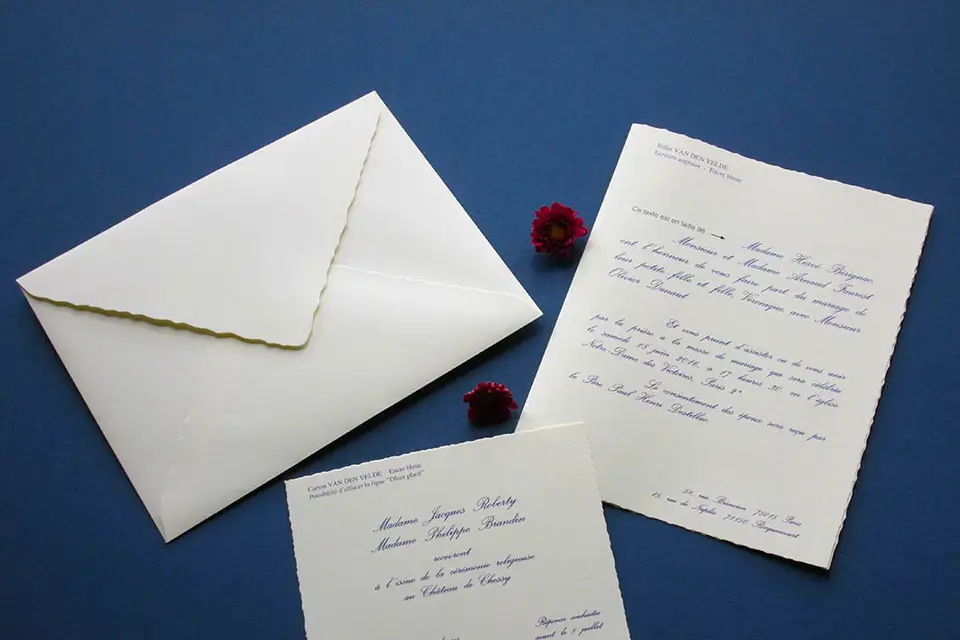 Billet VAN DEN VELDE
Ecriture anglaise - Encre bleue
Ce texte est en taille 98
Madame Hervé Bérignac,
Monsieur et Madame Arnaud Faurest
ont l'honneur de vous faire part du mariage de
leur petite fille et fille, Véronique, avec Monsieur
Olivier Danaut
Et vous prient d'assister ou de vous unir
par la prière à la messe de mariage qui sera célébrée
le samedi 18 juin 2016, à 17 heures 30, en l'église
Notre-Dame des Victoires, Paris 2e
Le consentement des époux sera reçu par
le Père Paul Henri Destillac.
rue 75015 Paris
15, rue de Naples
Carton VAN DEN VELDE Encre bleue
Possibilité d'effacer la ligne "Dîner placé"
Madame Jacques Roberty
Madame Philippe Brandin
recevront
à l'issue de la cérémonie religieuse
au Château de Chessy
Réponse souhaitée
avant le 5 juillet